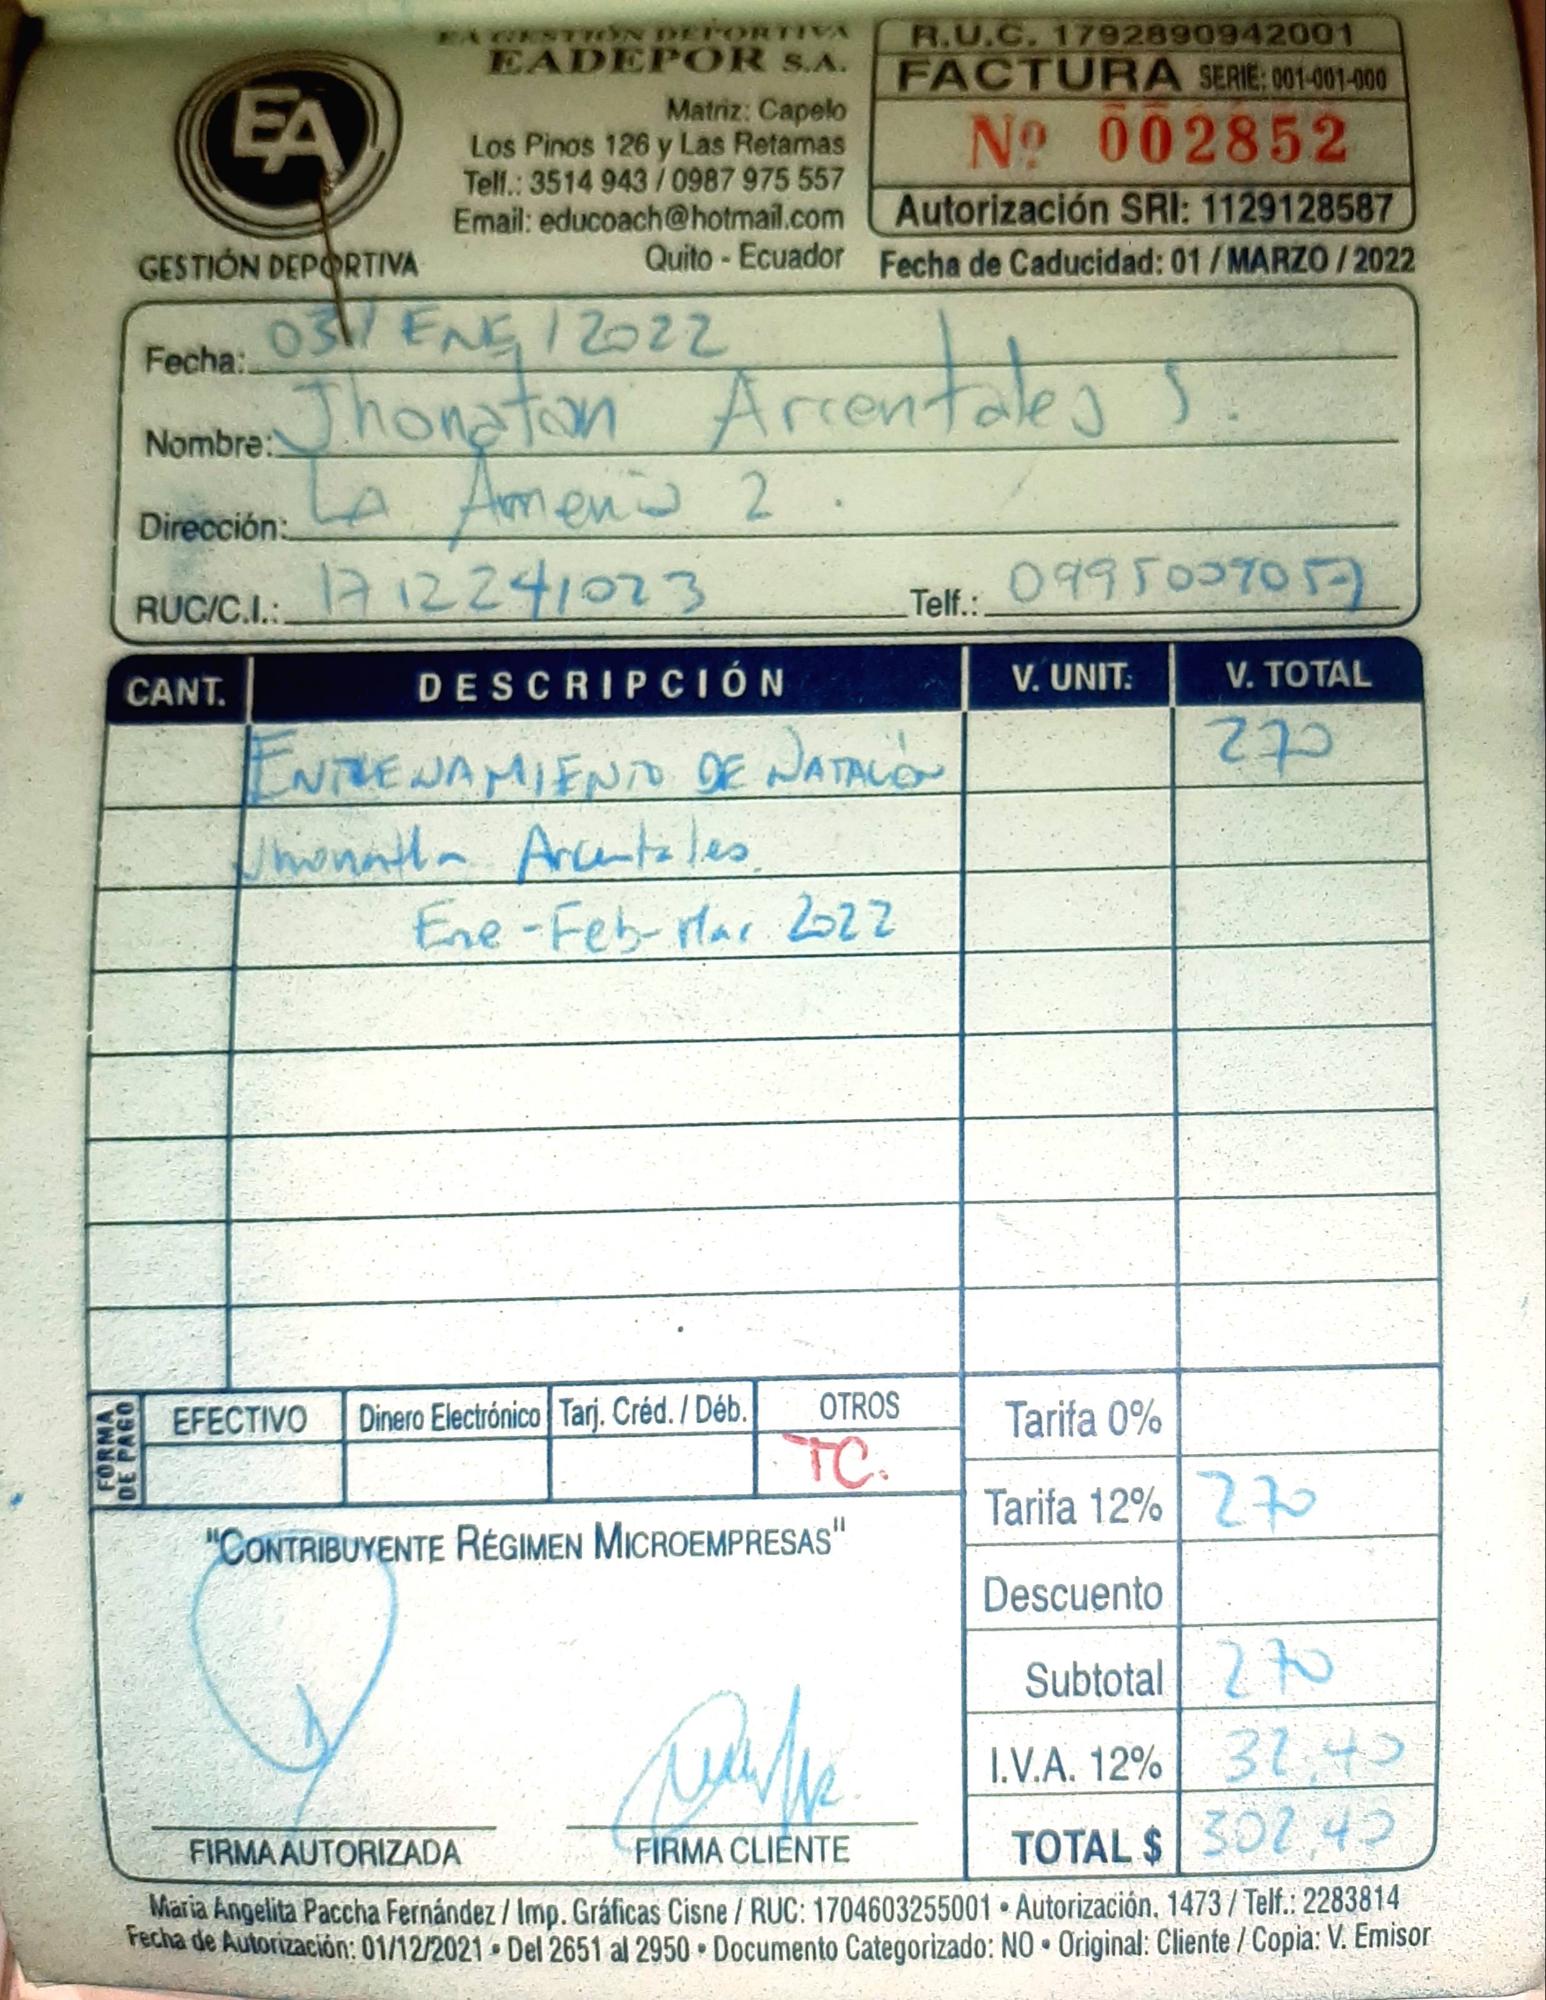 EA GESTIÓN DEPORTIVA
EADEPOR S.A.
EA
GESTIÓN DEPORTIVA
Matriz: Capelo
Los Pinos 126 y Las Retamas
Telf.: 3514 943 / 0987 975 557
Email: educoach@hotmail.com
Quito - Ecuador
R.U.C. 1792890942001
FACTURA SERIE: 001-001-000
Nº 002852
Autorización SRI: 1129128587
Fecha de Caducidad: 01 / MARZO / 2022
Fecha: 03 / ENE / 2022
Nombre: Jhonatan Arcentales S.
Dirección: La Armenia 2.
RUC/C.I.: 1712241023 Telf.:
CANT. DESCRIPCIÓN V. UNIT. V. TOTAL
ENTRENAMIENTO DE NATACIÓN 270
Jhonathan Arcentales.
Ene - Feb - Mar 2022
FORMA DE PAGO EFECTIVO Dinero Electrónico Tarj. Créd. / Déb. OTROS
TC.
Tarifa 0%
Tarifa 12% 270
Descuento
Subtotal 270
I.V.A. 12% 32,40
TOTAL $ 302,40
"CONTRIBUYENTE RÉGIMEN MICROEMPRESAS"
FIRMA AUTORIZADA FIRMA CLIENTE
Maria Angelita Paccha Fernández / Imp. Gráficas Cisne / RUC: 1704603255001 • Autorización. 1473 / Telf.: 2283814
Fecha de Autorización: 01/12/2021 • Del 2651 al 2950 • Documento Categorizado: NO • Original: Cliente / Copia: V. Emisor